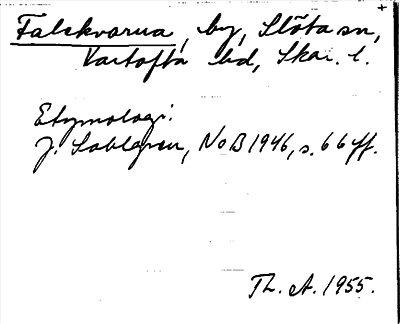 Falskvarna, by, Slöta sn,
Vartofta hd, Skar. l.
Etymologi:
J. Sahlgren, NoB 1946, s. 66 ff.
Th. A. 1955.